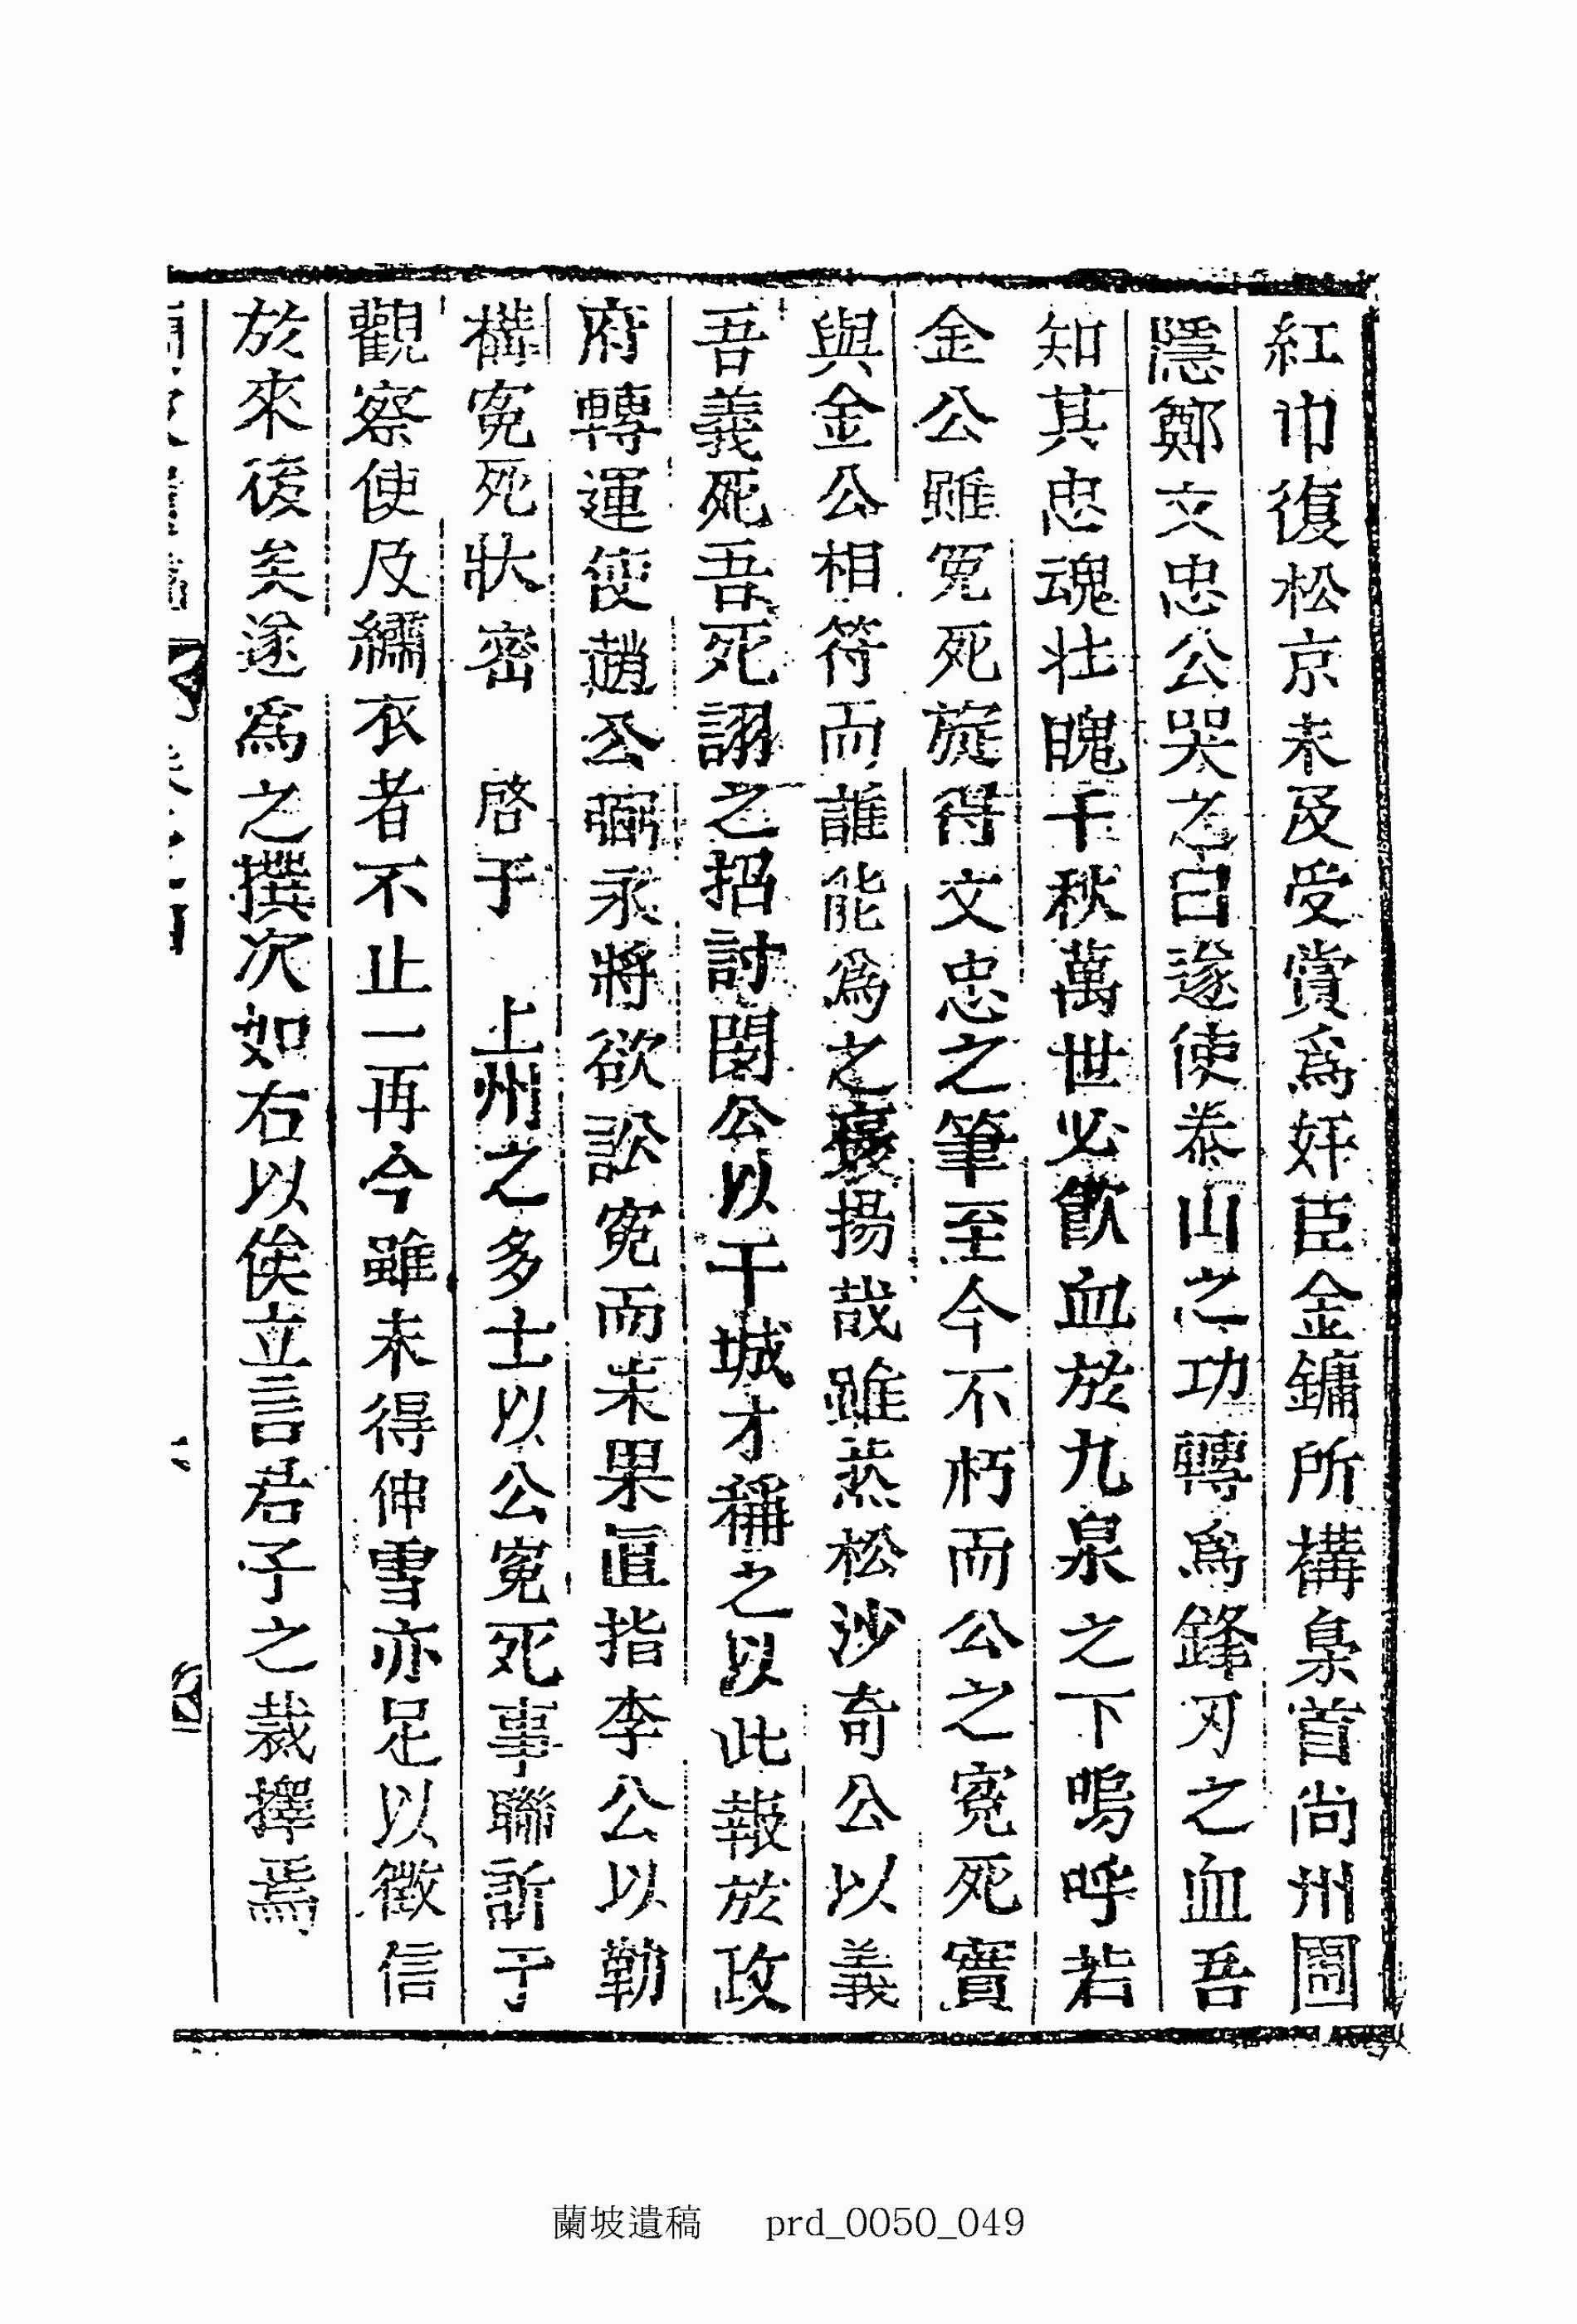 紅巾復松京未及受賞爲奸臣金鏞所構梟首尙州圃
隱鄭文忠公哭之曰遂使泰山之功轉爲鋒刃之血吾
知其忠魂壯魄千秋萬世必飮血於九泉之下嗚呼若
金公雖冤死旋得文忠之筆至今不朽而公之寃死實
與金公相符而誰能爲之褒揚哉雖然松沙奇公以義
吾義死吾死詡之招討閔公以干城才稱之以此報於政
府轉運使趙公弼永將欲訟寃而未果直指李公以勒
構寃死狀密 啓于 上州之多士以公寃死事聯訴于
觀察使及繡衣者不止一再今雖未得伸雪亦足以徵信
於來後矣遂爲之撰次如右以俟立言君子之裁擇焉
蘭坡遺稿 prd_0050_049